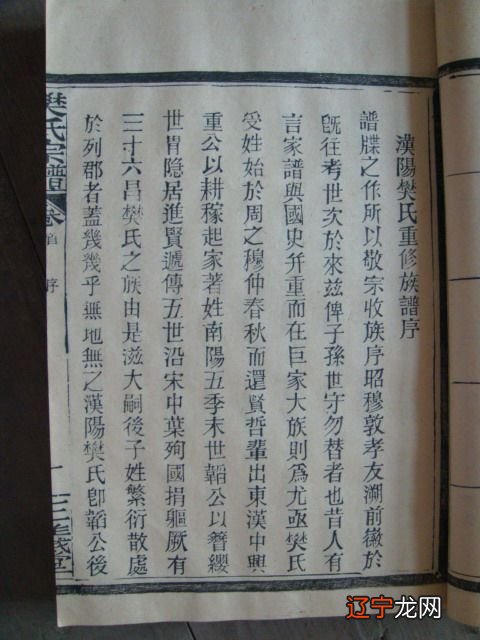 漢陽樊氏重修族譜序
譜牒之作所以敬宗收族序昭穆敦孝友溯前徽於
旣往考世次於來茲俾子孫世守勿替者也昔人有
言家譜與國史并重而在巨家大族則爲尤亟樊氏
受姓始於周之穆仲春秋而還賢哲輩出東漢中興
重公以耕稼起家著姓南陽五季末世韜公以簪纓
世胄隐居進賢遞傳五世沿宋中葉殉國捐軀厥有
三十六昌樊氏之族由是滋大嗣後子姓繁衍散處
於列郡者蓋幾幾乎無地無之漢陽樊氏卽韜公後
樊氏宗譜 卷首 序 一
辽宁龙网